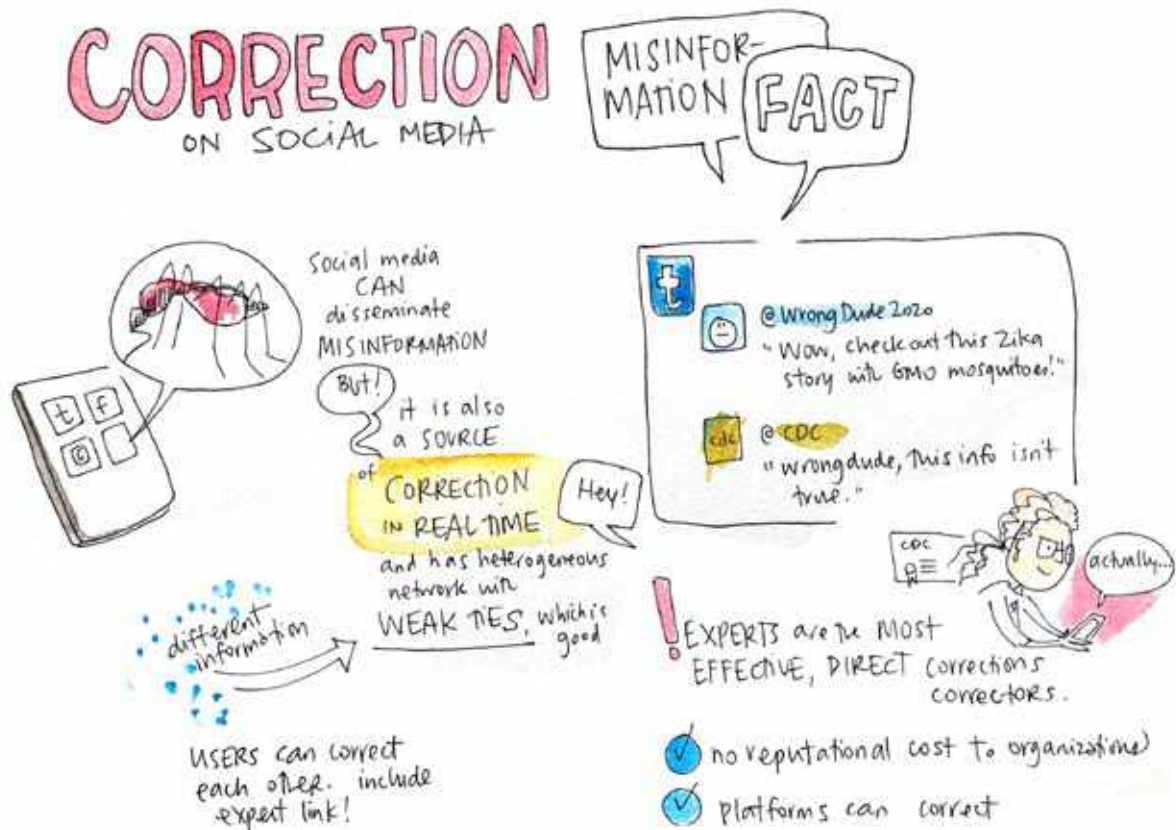 CORRECTION
ON SOCIAL MEDIA
MISINFOR-
MATION
FACT
Social media
CAN
disseminate
MISINFORMATION
But!
it is also
a SOURCE
of
CORRECTION
IN REAL TIME
and has heterogeneous
network with
WEAK TIES, which is
good
Hey!
t f
different
information
USERS can correct
each other. include
expert link!
t
@WrongDude2020
"Wow, check out this Zika
story with GMO mosquitoes!"
cdc
@CDC
"wrongdude, this info isn't
true."
CDC
actually...
! EXPERTS are the MOST
EFFECTIVE, DIRECT corrections
correctors.
✓ no reputational cost to organizations)
✓ platforms can correct